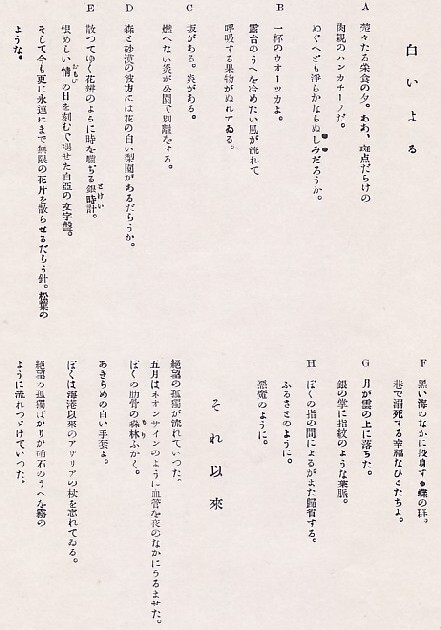 白いよる
A 茫々たる粂食の夕。ああ、斑点だらけの
肉親のハンカチーノだ。
ぬぐへども浄らかならぬしみだらうか。
B 一杯のウオーッカよ。
露台のうへを冷めたい風が流れて
呼吸する果物がぬれてゐる。
C 坂がある。炎がある。
燃へない炎が公園で別離をする。
D 森と砂漠の彼方には夜の白い梨園があるだらうか。
E 散つてゆく花瓣のように時を齎ぢる銀時計。
恨めしい情の日を刻むで褪せた白亞の文字盤。
そして今も更に永遠にまで無限の花片を散らせるだらう針。松葉の
ような。
F 黒い海のなかに投身する蝶の群。
巷で溺死する幸福なひとたちよ。
G 月が雲の上に落ちた。
銀の掌に指紋のような葉脈。
H ぼくの指の間によるがまた歸省する。
ふるさとのように。
悪魔のように。
それ以來
絶望の孤獨が流れていつた。
五月はネオンサインのように血管を夜のなかにうるませた。
ぼくの肋骨の森林ふかく。
あきらめの白い手套よ。
ぼくは海港以來のアカリアの杖を忘れてゐる。
絶望の孤獨ばかりが硝石のうへを霧の
ように流れつづけていつた。